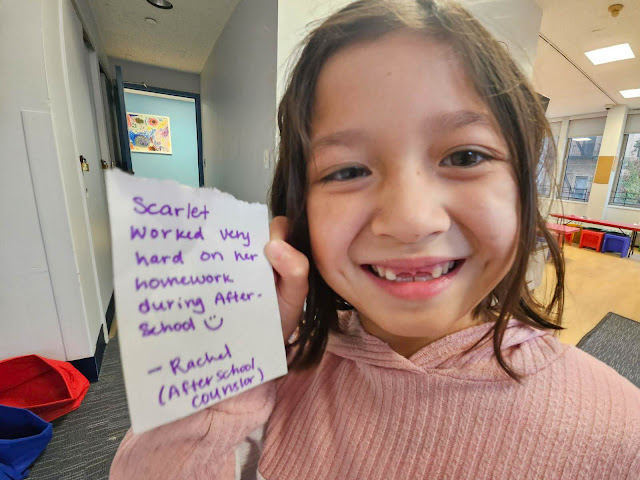 Scarlet
Worked very
hard on her
homework
during After-
School ☺
- Rachel
(After school
counslor)